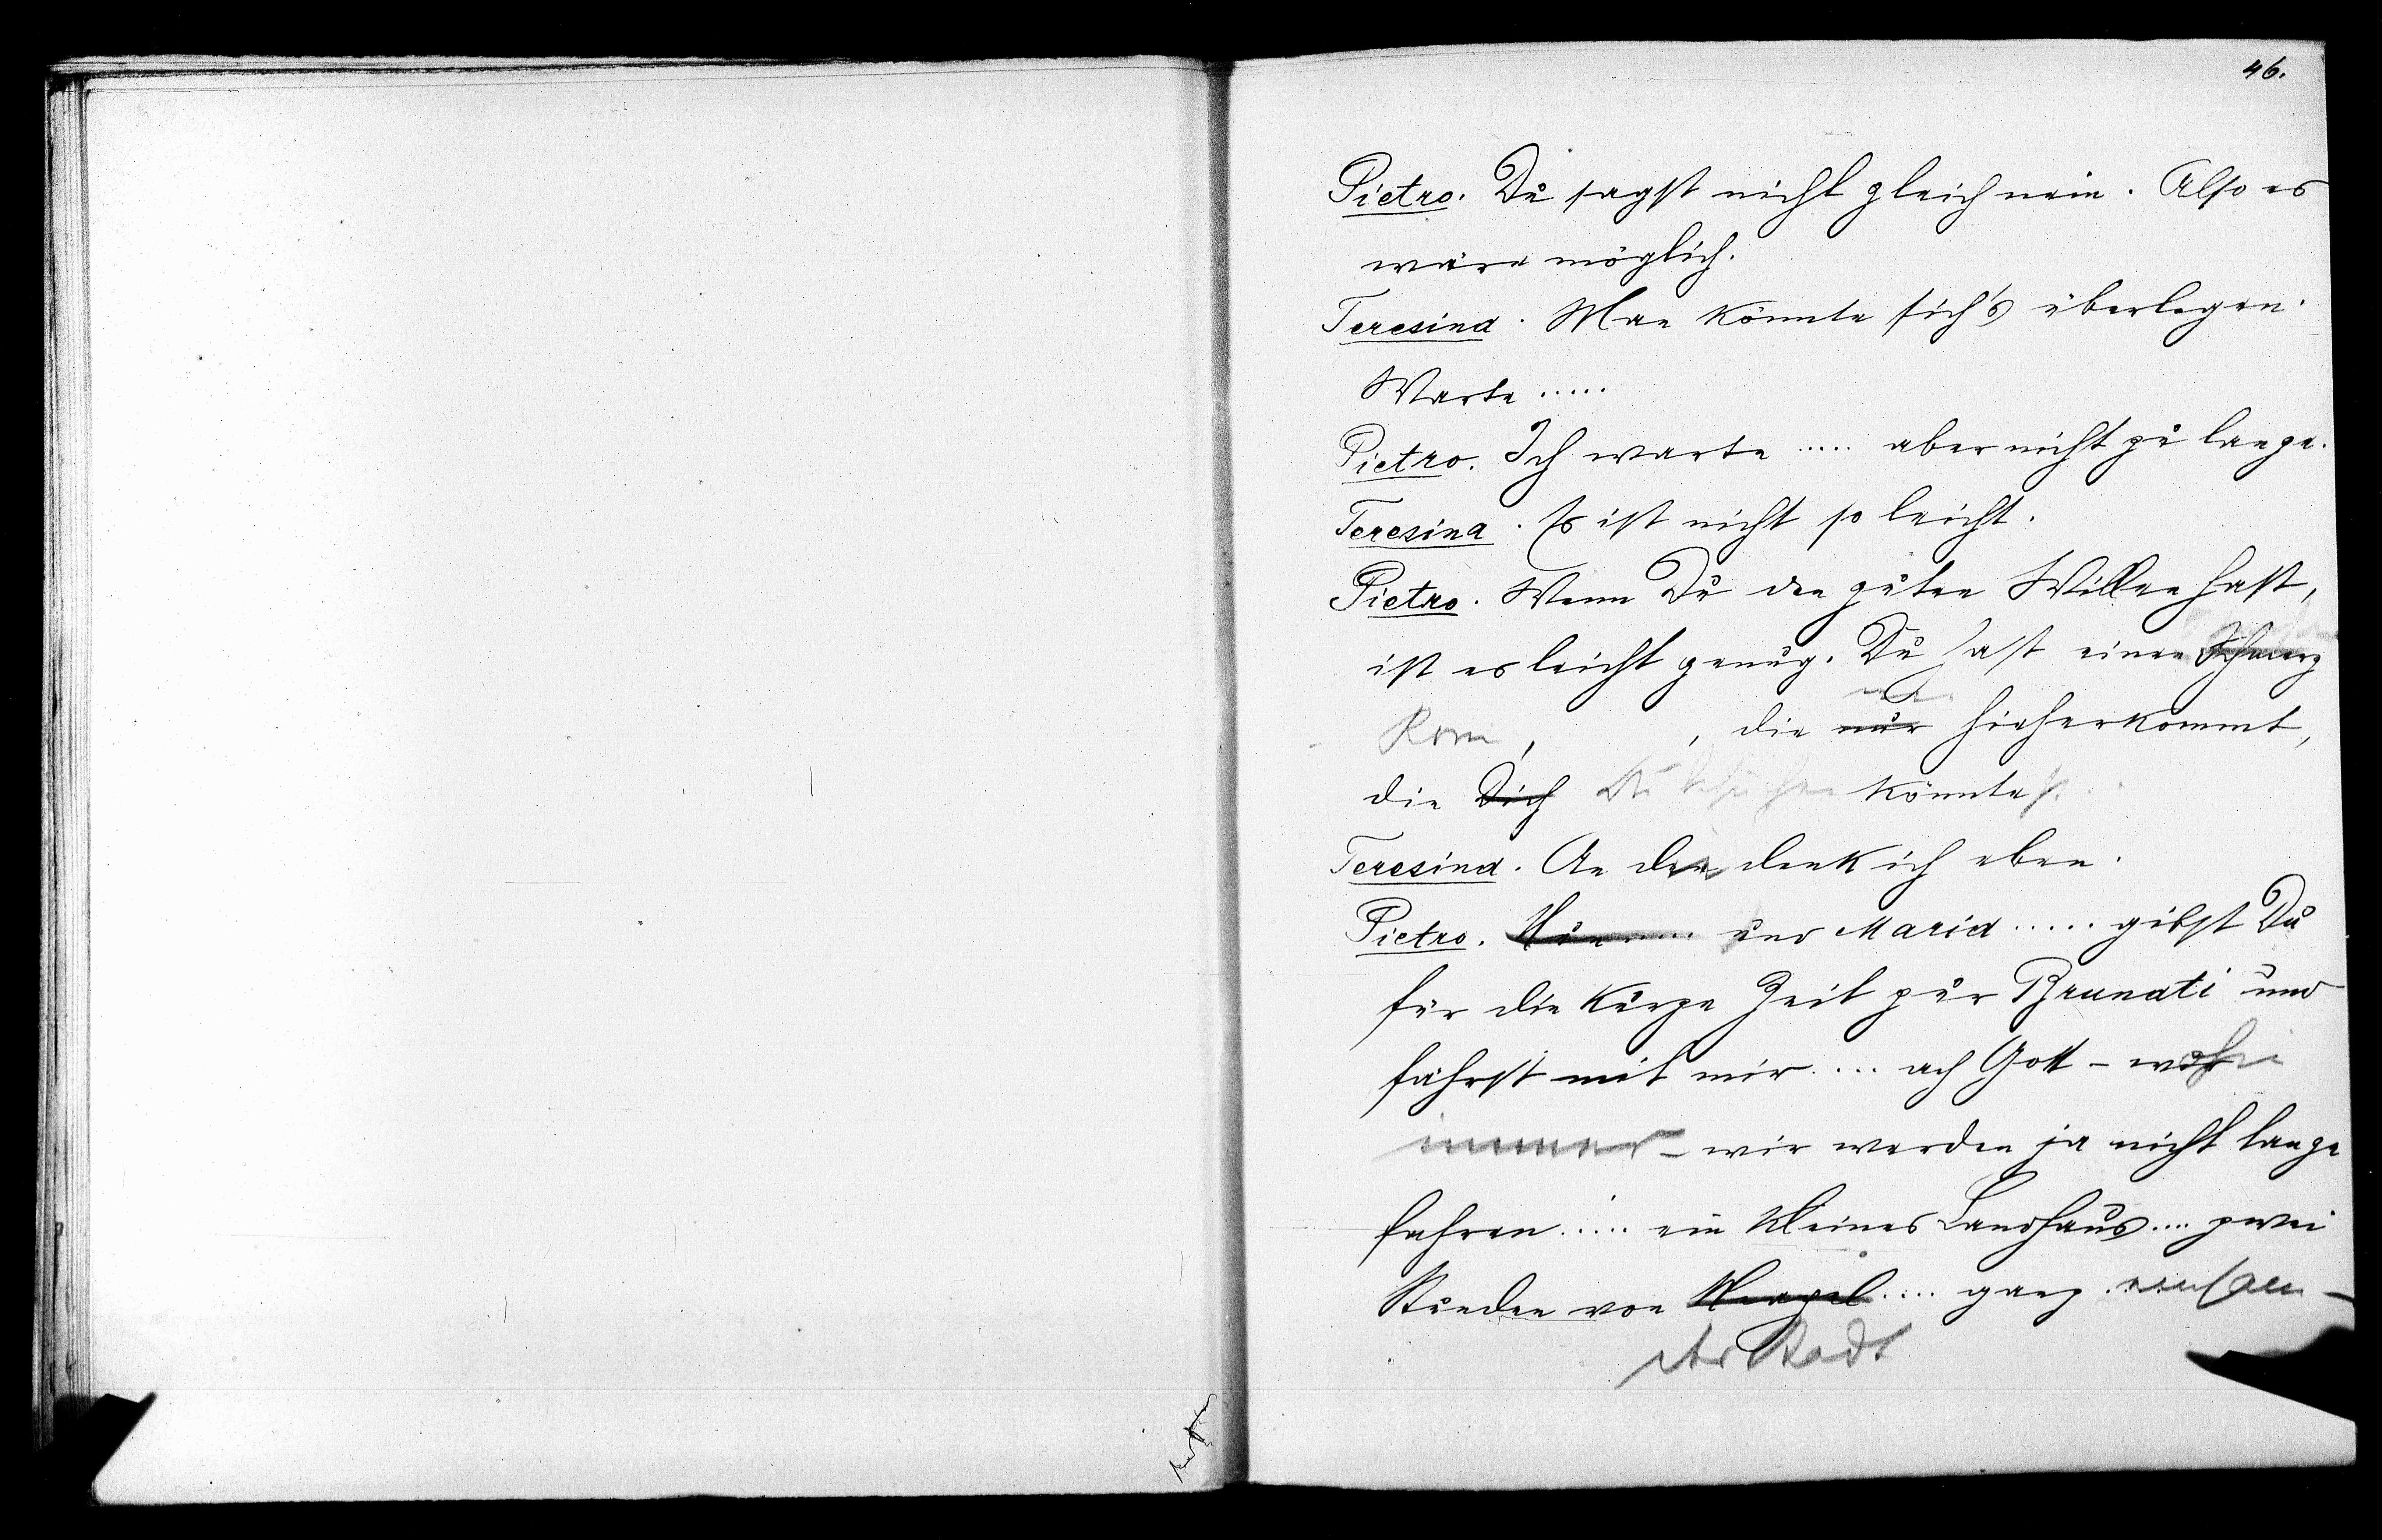 46.
Pietro. Du sagst nicht gleich nein. Also es
wäre möglich.
Teresina. Man könnte sich's überlegen.
Warte .....
Pietro. Ich warte ..... aber nicht zu lange.
Teresina. Es ist nicht so leicht.
Pietro. Wenn Du den guten Willen hast,
ist es leicht genug. Du hast einen
Rom, , die nur hieherkommt,
die Dich Du besuchen könntest.
Teresina. An den denk ich eben.
Pietro. Nun ..... und Maria ..... gibst Du
für die kurze Zeit zur Brunati und
fährst mit mir .... ach Gott - wohin
immer - wir werden ja nicht lange
fahren ..... ein kleines Landhaus .... zwei
Stunden von Neapel .... ganz einsam -
der Stadt